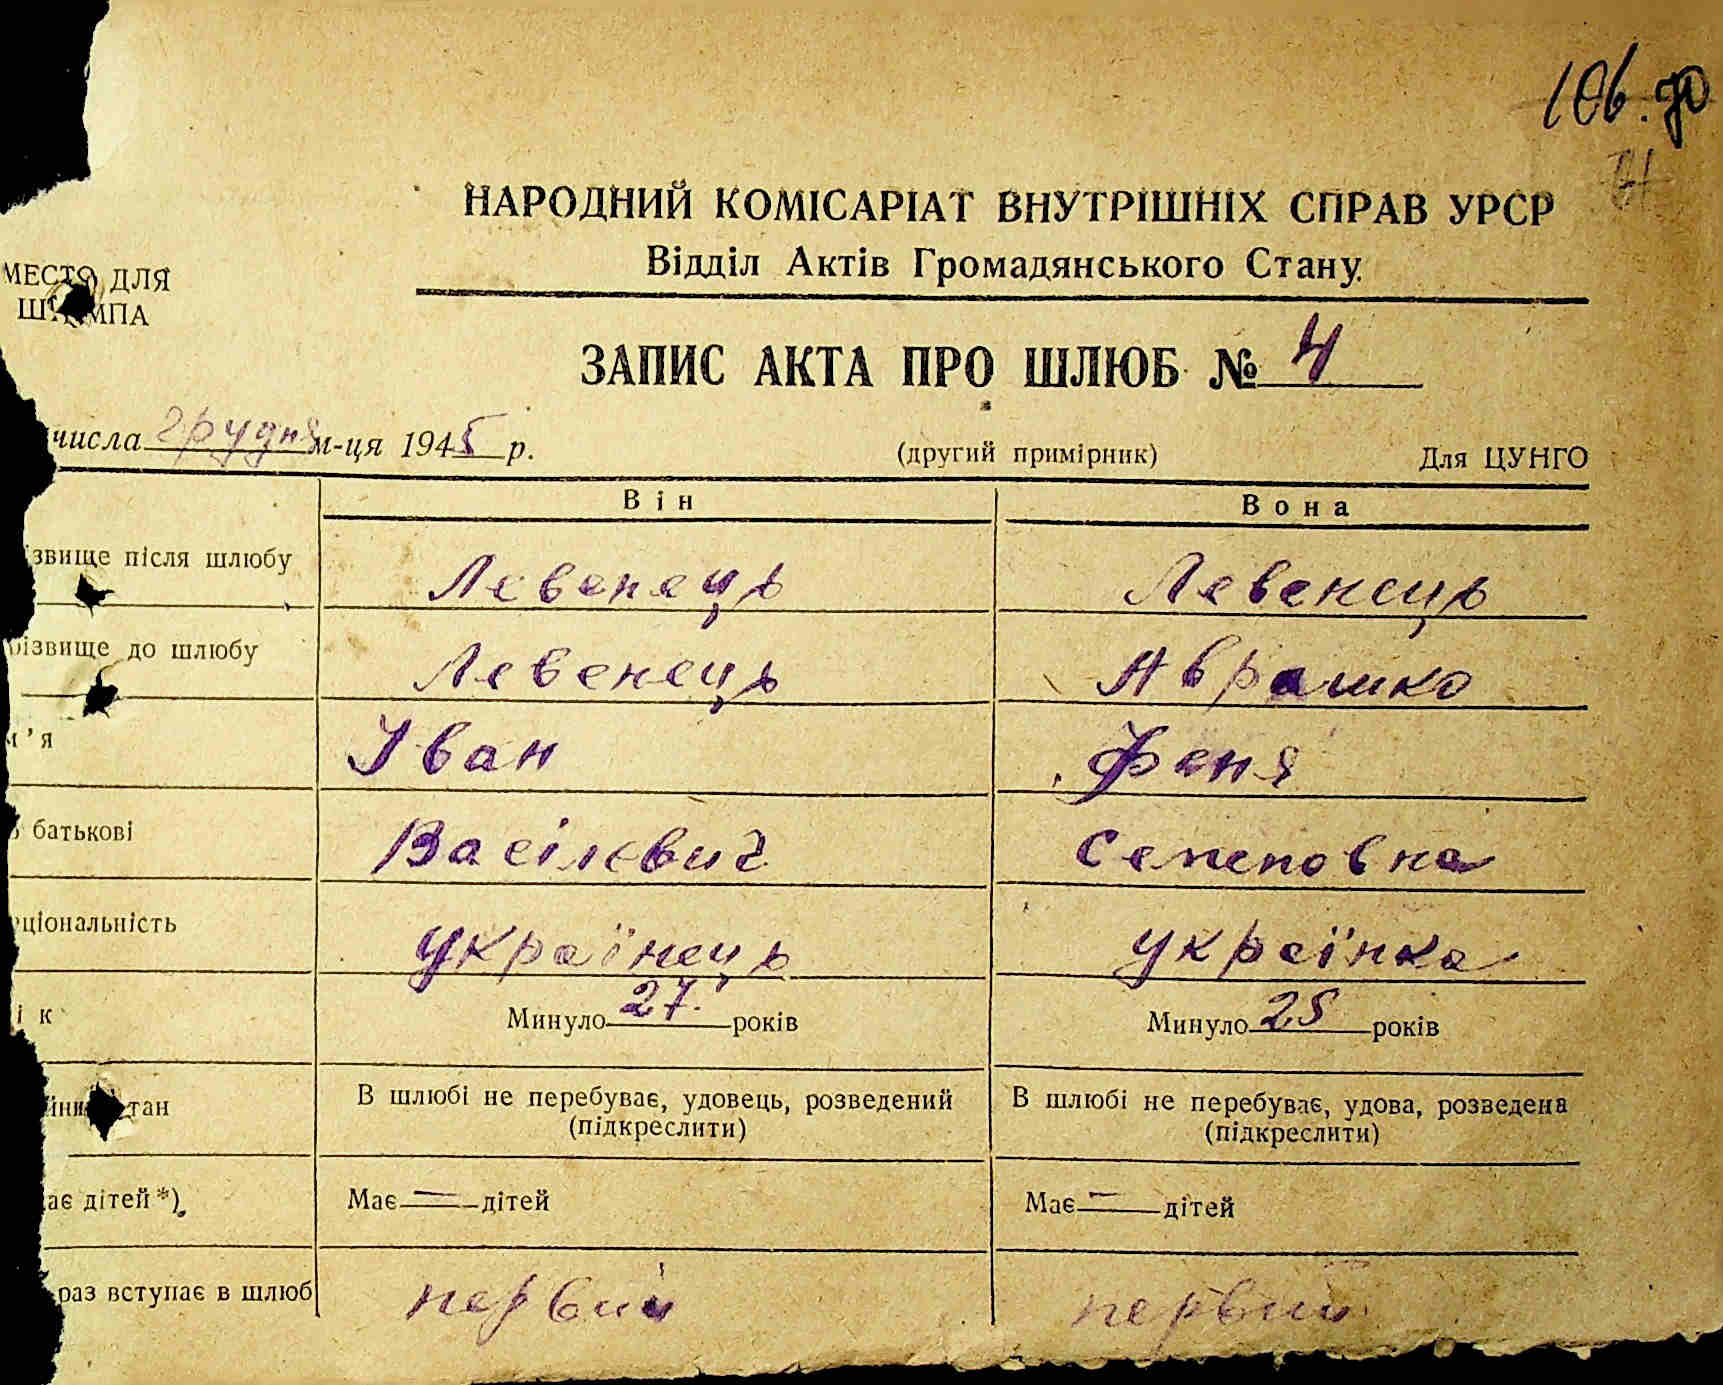 106.
НАРОДНИЙ КОМІСАРІАТ ВНУТРІШНІХ СПРАВ УРСР
Відділ Актів Громадянського Стану.
МЕСТО ДЛЯ
ШТАМПА
ЗАПИС АКТА ПРО ШЛЮБ № 4
числа грудня м-ця 1945 р.
(другий примірник)
Для ЦУНГО
Він Вона
ізвище після шлюбу Левенець Левенець
різвище до шлюбу Левенець Аврашко
м'я Іван Феня
батькові Васілєвич Семеновна
ціональність Українець українка
ік Минуло 27 років Минуло 25 років
тан В шлюбі не перебуває, удовець, розведений В шлюбі не перебуває, удова, розведена
(підкреслити) (підкреслити)
ає дітей*) Має — дітей Має — дітей
раз вступає в шлюб первий первий